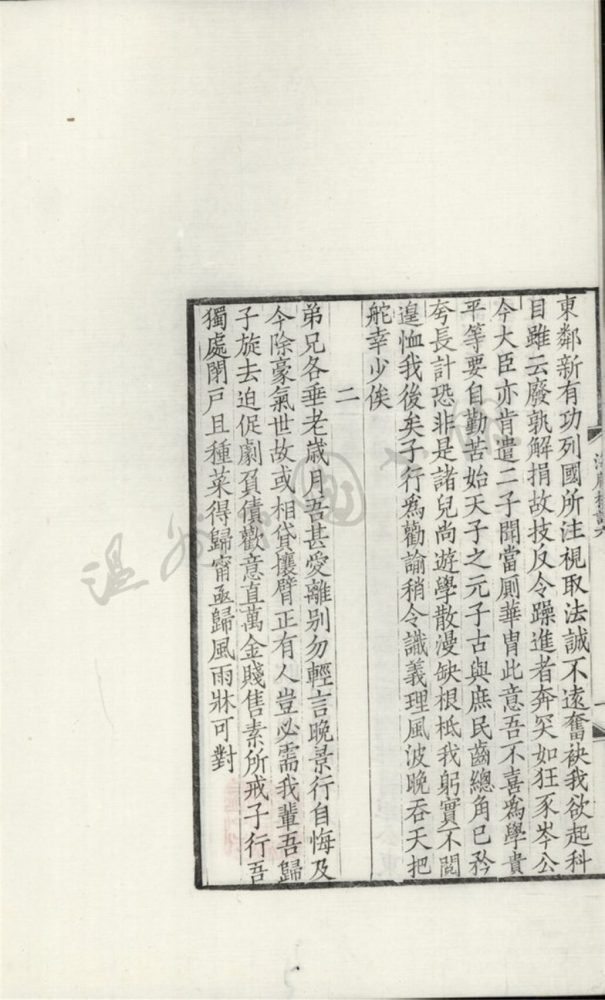 東鄰新有功列國所注視取法誠不遠奮袂我欲起科
目雖云廢孰解捐故技反令躁進者奔突如狂豕岑公
今大臣亦肯遣二子聞當厠華冑此意吾不喜為學貴
平等要自勤苦始天子之元子古與庶民齒總角已矜
夸長計恐非是諸兒尚遊學散漫缺根柢我躬實不閱
遑恤我後矣子行為勸諭稍令識義理風波晚吞天把
舵幸少俟
二
弟兄各垂老歲月吾甚愛離別勿輕言晚景行自悔及
今除豪氣世故或相貸攘臂正有人豈必需我輩吾歸
子旋去迫促劇負債歡意直萬金賤售素所戒子行吾
獨處閉戶且種菜得歸甯亟歸風雨牀可對